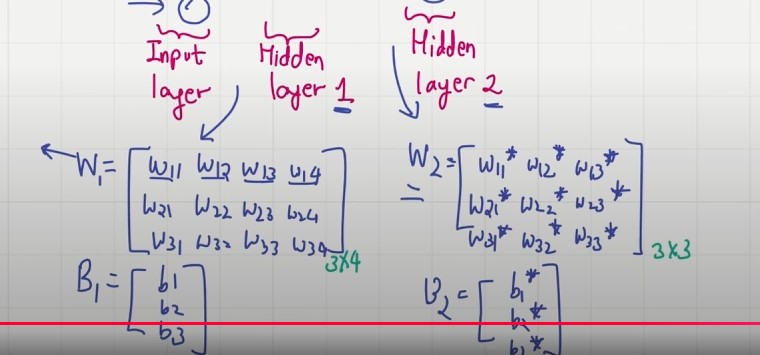 Input layer
Hidden layer 1
Hidden layer 2
W1 = [ w11 w12 w13 w14
w21 w22 w23 w24
w31 w32 w33 w34 ] 3x4
B1 = [ b1
b2
b3 ]
W2 = [ w11* w12* w13*
w21* w22* w23*
w31* w32* w33* ] 3x3
B2 = [ b1*
b2*
b3* ]